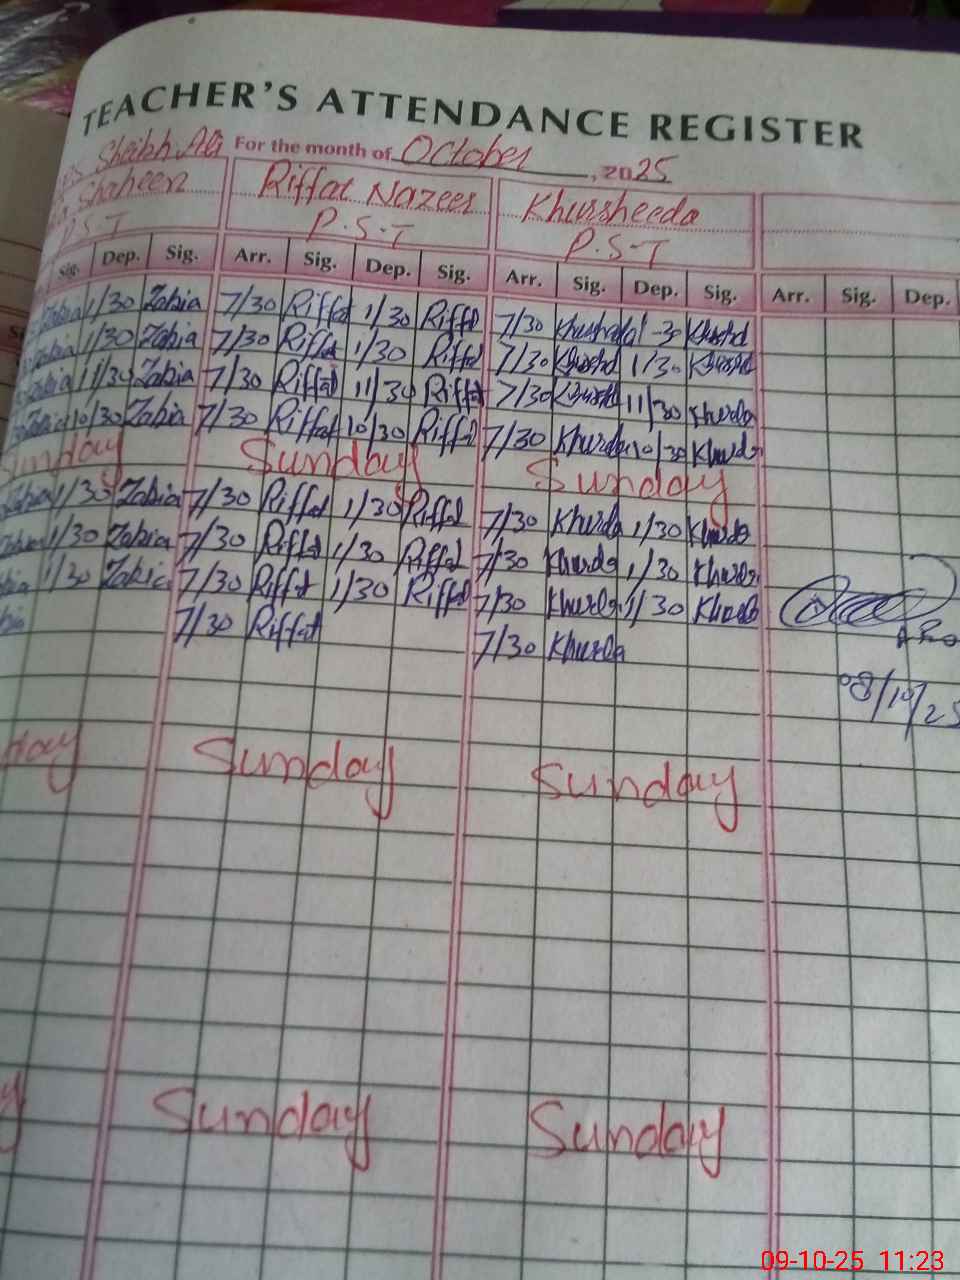 TEACHER'S ATTENDANCE REGISTER
Sheikh Ali For the month of October, 2025
Shaheen Riffat Nazeer Khursheeda
P.S.T P.S.T P.S-T
Sig. Dep. Sig. Arr. Sig. Dep. Sig. Arr. Sig. Dep. Sig. Arr. Sig. Dep.
Zabia 1/30 Zabia 7/30 Riffat 1/30 Riffat 7/30 Khursheda 1-30 Khushd
Zabia 1/30 Zabia 7/30 Riffat 1/30 Riffat 7/30 Khushd 1/30 Khushd
Zabia 11/30 Zabia 7/30 Riffat 11/30 Riffat 7/30 Khushd 11/30 Khurda
Zabia 10/30 Zabia 7/30 Riffat 10/30 Riffat 7/30 Khurda 10/30 Khurda
Sunday Sunday Sunday
Zabia 1/30 Zabia 7/30 Riffat 1/30 Riffat 7/30 Khurda 1/30 Khurda
Zabia 1/30 Zabia 7/30 Riffat 1/30 Riffat 7/30 Khurda 1/30 Khurda
1/30 Zabia 7/30 Riffat 1/30 Riffat 7/30 Khurda 1/30 Khurda
7/30 Riffat 7/30 Khurda
08/10/25
day Sunday Sunday
y Sunday Sunday
09-10-25 11:23